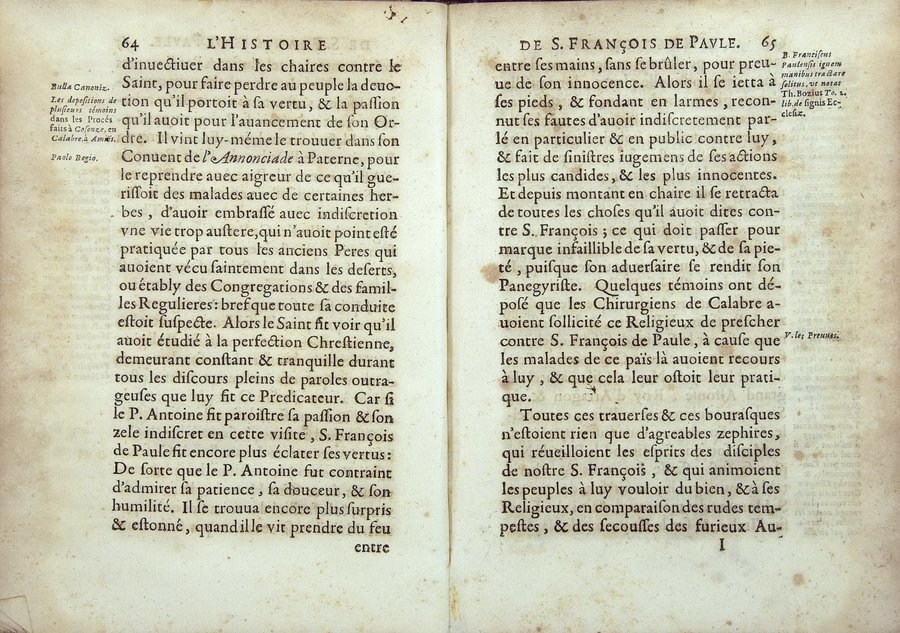 64 L'HISTOIRE
Bulla Canoniz.
Les depositions de
plusieurs témoins
dans les Procés
faits à Cosenze, en
Calabre, à Amiés.
Paolo Regio.
d'inuectiuer dans les chaires contre le
Saint, pour faire perdre au peuple la deuo-
tion qu'il portoit à sa vertu, & la passion
qu'il auoit pour l'auancement de son Or-
dre. Il vint luy-méme le trouuer dans son
Conuent de l'Annonciade à Paterne, pour
le reprendre auec aigreur de ce qu'il gue-
rissoit des malades auec de certaines her-
bes, d'auoir embrassé auec indiscretion
vne vie trop austere, qui n'auoit point esté
pratiquée par tous les anciens Peres qui
auoient vécu saintement dans les deserts,
ou étably des Congregations & des famil-
les Regulieres: bref que toute sa conduite
estoit suspecte. Alors le Saint fit voir qu'il
auoit étudié à la perfection Chrestienne,
demeurant constant & tranquille durant
tous les discours pleins de paroles outra-
geuses que luy fit ce Predicateur. Car si
le P. Antoine fit paroistre sa passion & son
zele indiscret en cette visite, S. François
de Paule fit encore plus éclater ses vertus:
De sorte que le P. Antoine fut contraint
d'admirer sa patience, sa douceur, & son
humilité. Il se trouua encore plus surpris
& estonné, quand il le vit prendre du feu
entre
DE S. FRANÇOIS DE PAVLE. 65
entre ses mains, sans se brûler, pour preu-
ue de son innocence. Alors il se ietta à
ses pieds, & fondant en larmes, recon-
nut ses fautes d'auoir indiscretement par-
lé en particulier & en public contre luy,
& fait de sinistres iugemens de ses actions
les plus candides, & les plus innocentes.
Et depuis montant en chaire il se retracta
de toutes les choses qu'il auoit dites con-
tre S. François; ce qui doit passer pour
marque infaillible de sa vertu, & de sa pie-
té, puisque son aduersaire se rendit son
Panegyriste. Quelques témoins ont dé-
posé que les Chirurgiens de Calabre a-
uoient sollicité ce Religieux de prescher
contre S. François de Paule, à cause que
les malades de ce païs là auoient recours
à luy, & que cela leur ostoit leur prati-
que.
Toutes ces trauerses & ces bourasques
n'estoient rien que d'agreables zephires,
qui réueilloient les esprits des disciples
de nostre S. François, & qui animoient
les peuples à luy vouloir du bien, & à ses
Religieux, en comparaison des rudes tem-
pestes, & des secousses des furieux Au-
I
B. Franciscus
Paulensis ignem
manibus tractare
solitus, vt notat
Th. Bozius To. 2.
lib. de signis Ec-
clesiæ.
V. les Preuues.